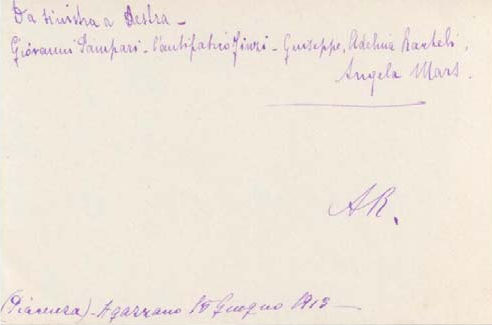 Da sinistra a destra -
Giovanni Pampari - l'antipatico Finzi - Giuseppe, Adelina Rasteli,
Angela Mars.
AR.
(Piacenza) - Agazzano 15 Giugno 1913 -